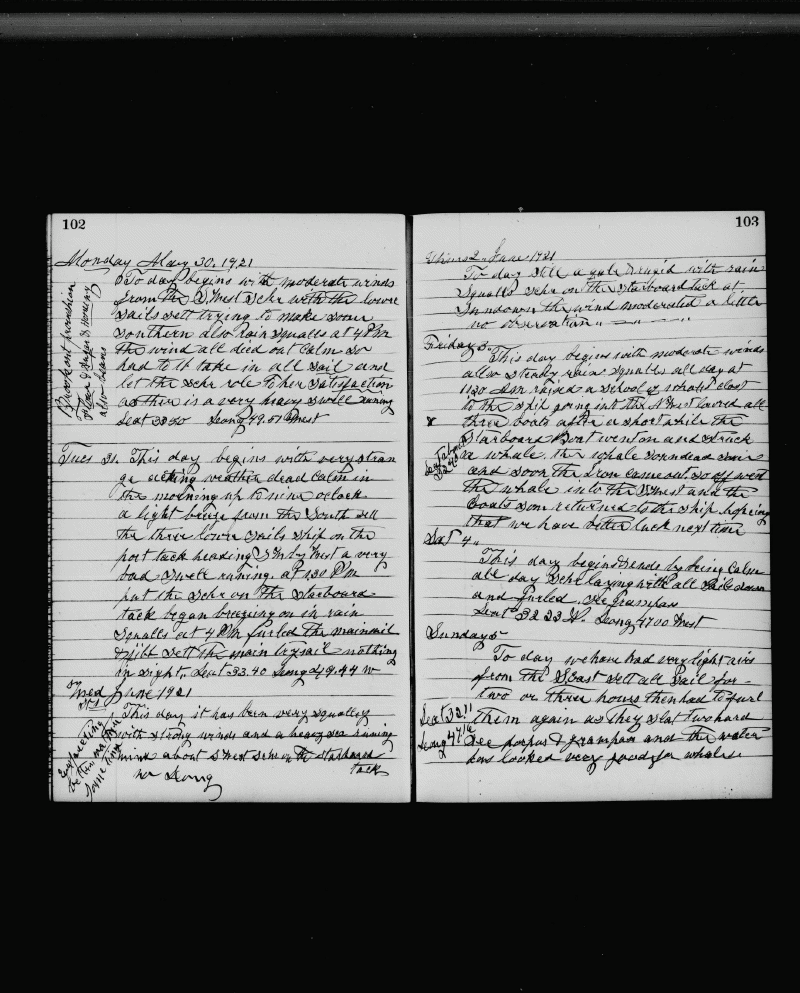 102
Monday May 30, 1921
To day begins with moderate winds
from the S West Schr with the lower
Sails sett trying to make some
Southern also Rain Squalls at 4 PM
the wind all died out Calm so
had to take in all Sail and
let the Schr role to her satisfaction
as there is a very heavy swell runing
Leat 33.50 Leong 49.51 West
Broke out provision
Flour & Sugar & Hominy
also beans
Tues 31. This day begins with very stran
ge acting weather dead Calm in
the morning up to nine oclock
a light breeze from the South sett
the three lower Sails Ship on the
port tack heading S W by West a very
bad Swell runing. at 1.30 PM
put the Schr on the Starboard
tack began breezing on in rain
Squalls at 4 PM furled the mainsail
& jibb sett the main trysail nothing
in sight. Leat 33.40 Leong 49.44 W
Wed June 1921
1st
This day it has ben very squally
with strong winds and a heavy sea runing
wind about S West Schr on the starboard
tack
no Leong
Expecting
better weather
some time
103
Thurs 2. June 1921
To day still a gale & rugid with rain
Squalls Schr on the Starboard tack at
Sundown the wind moderated a little
no observation
Friday 3.
This day begins with moderate winds
also steady rain squalls all day at
11.30 Am raised a school of whales close
to the ship going into the N West lowred all
x three boats after a short while the
Starboard Boat went on and Struck
a whale the whale
and soon the Iron came out. so off went
the whale into the S West and the
Boats soon returned to the ship. hopeing
that we have better luck next time
Leat about
32.40
Sat 4.
This day begins & ends by being Calm
all day Schr laying with all Sails down
and furled. See Grampas
Leat 32 33 N. Leong 47 00 West
Sunday 5
To day we have had very light airs
from the S East sett all Sail for
two or three hours then had to furl
them again as they slat two hard
See porpus & grampas and the water
has looked very good for whales
Leat 32 11
Leong 47 16